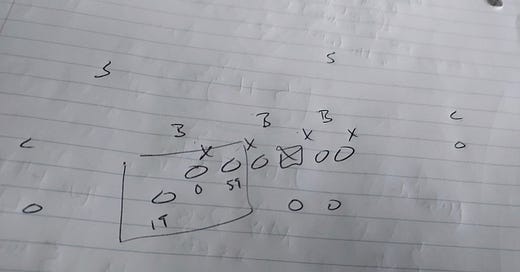 S
S
B B B C
C X X X X O
O O O X O O
O O 59
O O O
19